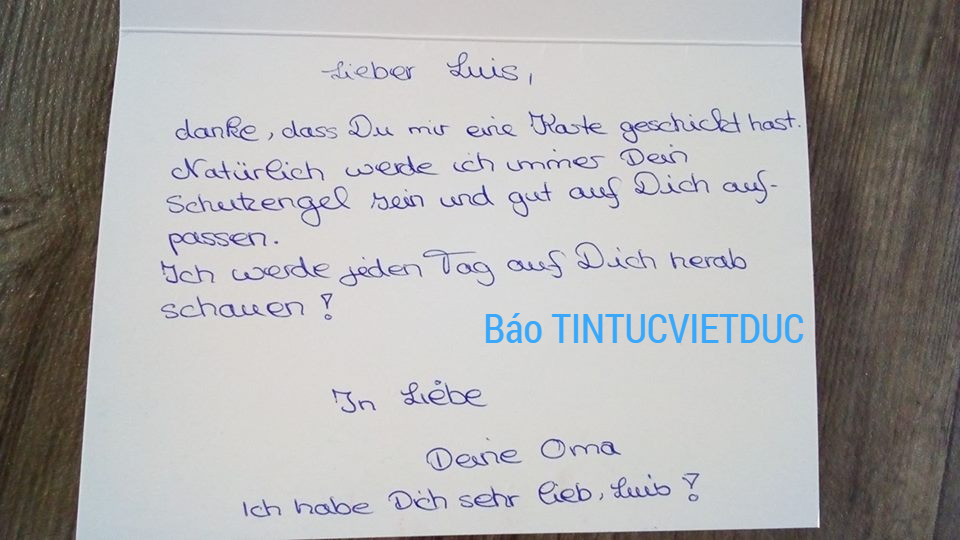 Lieber Luis,
danke, dass Du mir eine Karte geschickt hast.
Natürlich werde ich immer Dein
Schutzengel sein und gut auf Dich auf-
passen.
Ich werde jeden Tag auf Dich herab
schauen!
Báo TINTUCVIETDUC
In Liebe
Deine Oma
Ich habe Dich sehr lieb, Luis!